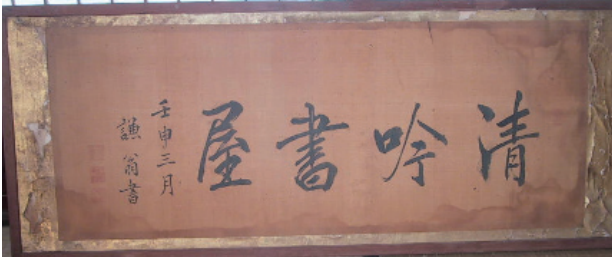 清吟書屋
壬申三月
謙翁書